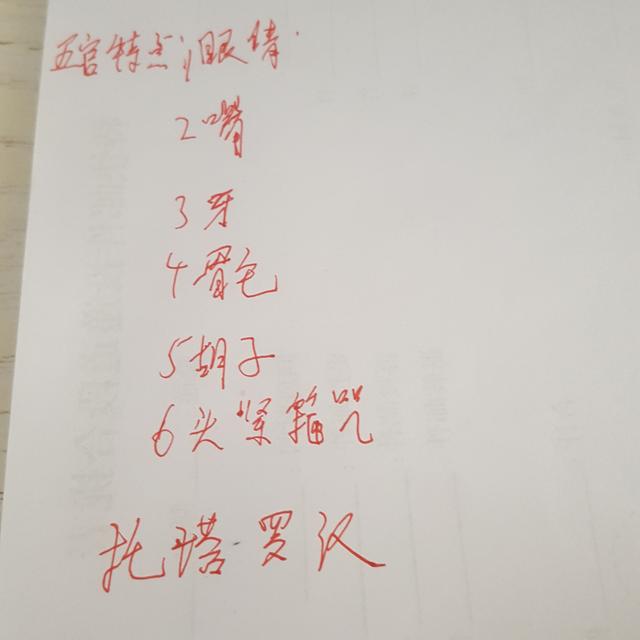 五官特点;1眼睛.
2嘴
3牙
4眉毛
5胡子
6头紧箍咒
托塔罗汉